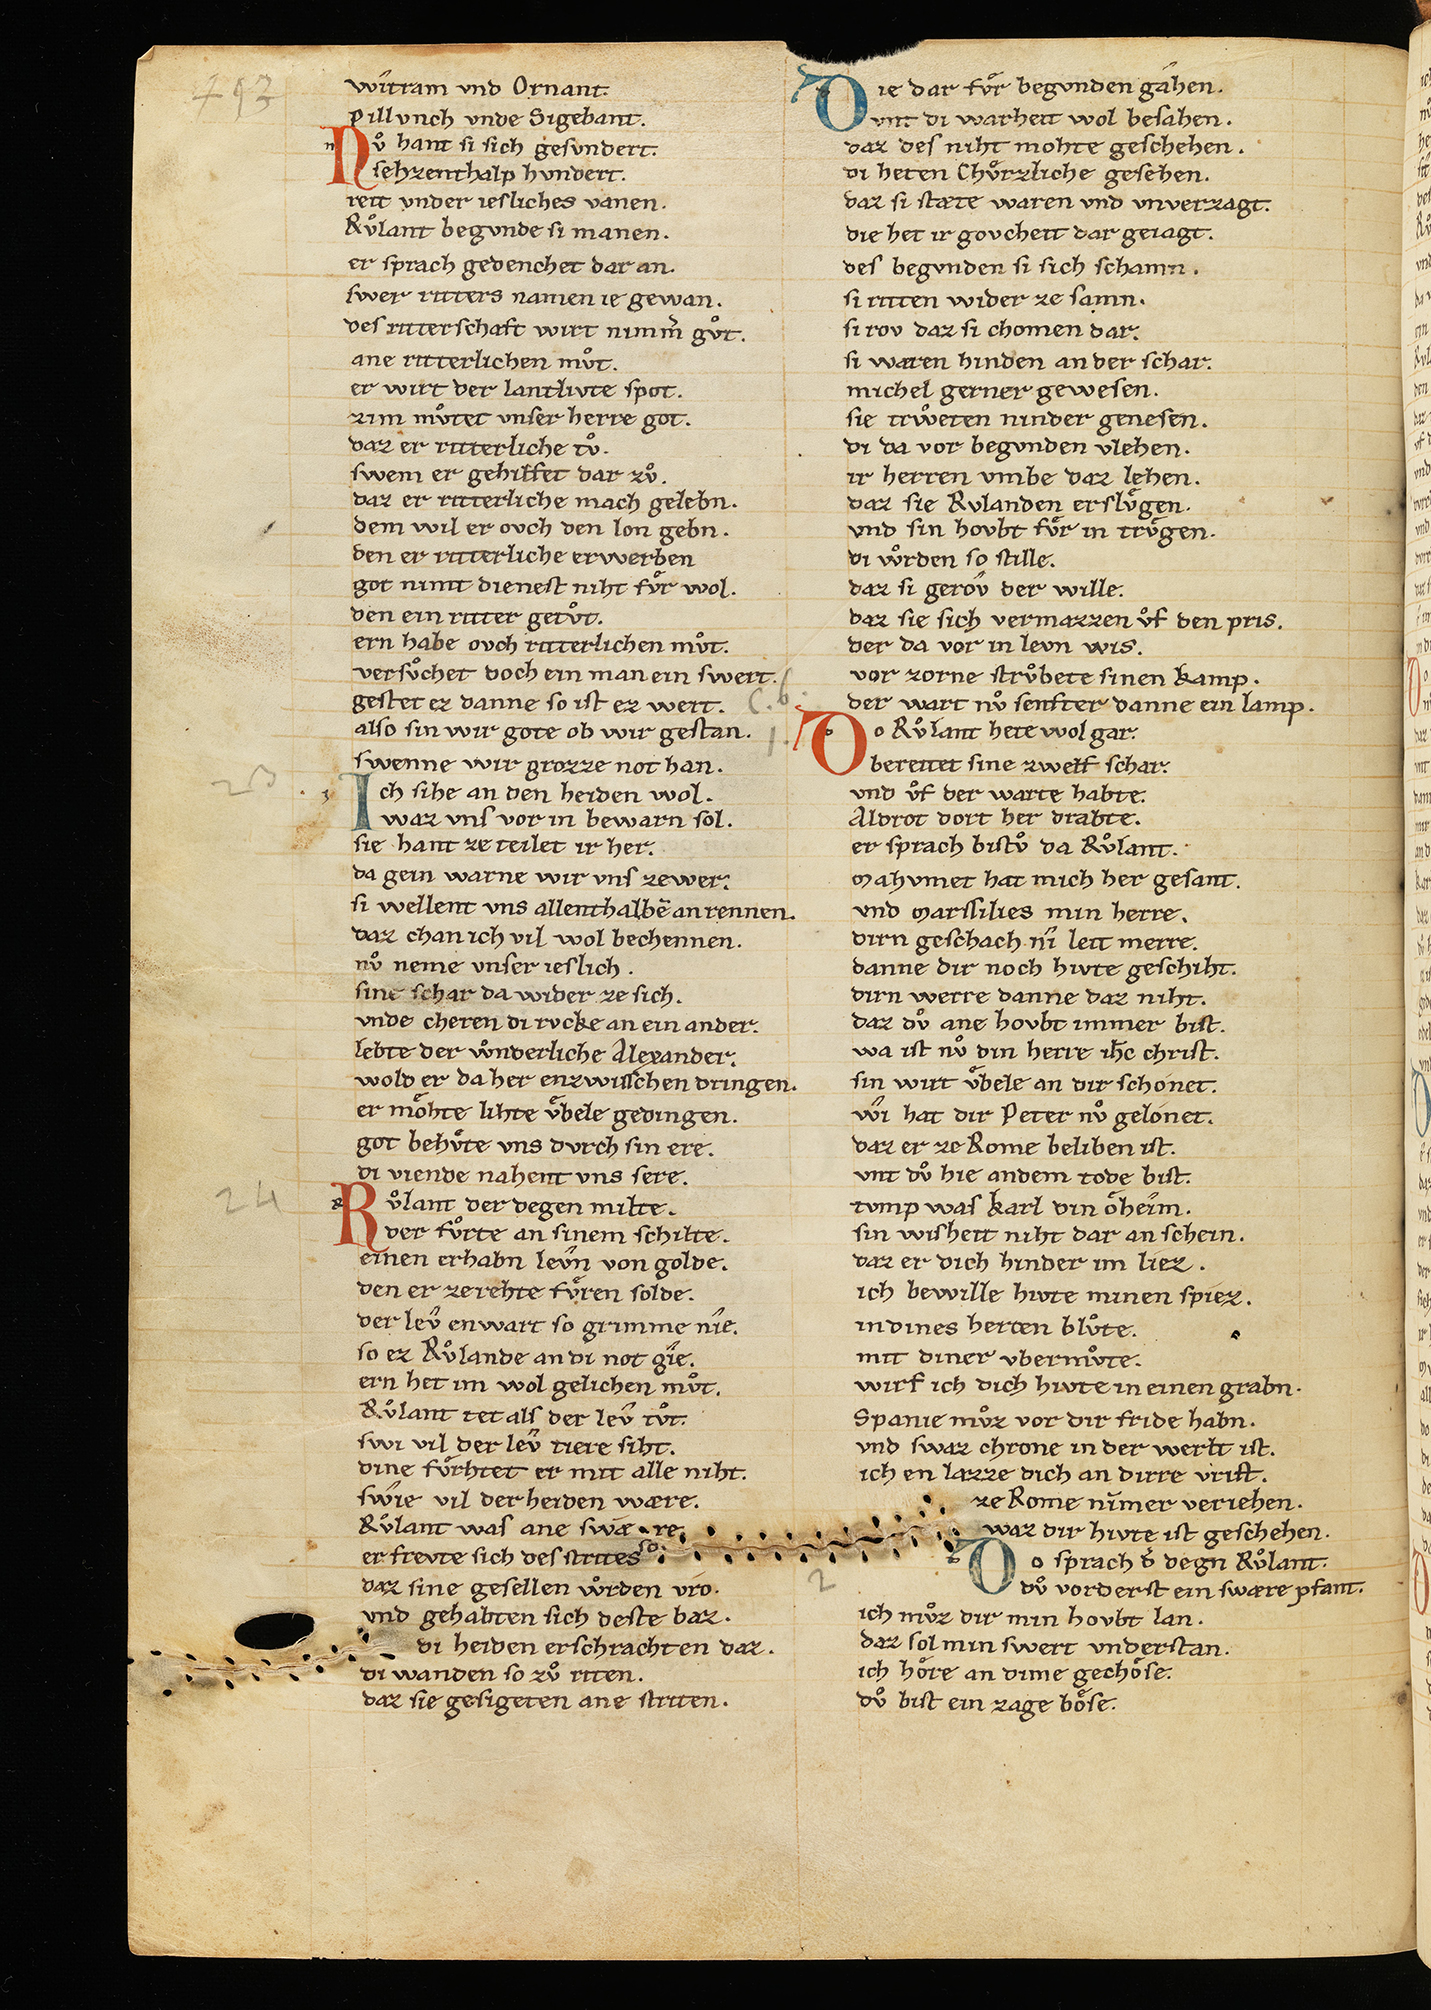 wîtram vnd Ornant.
pillvnch vnde Sigebant.
Nv̊ hant si sich gesvndert.
sehzenthalp hvndert.
reit vnder iesliches vanen.
Rv̊lant begvnde si manen.
er sprach gedenchet dar an.
swer ritters namen ie gewan.
des ritterschaft wirt nimm̄ gv̊t.
ane ritterlichen mv̊t.
er wirt der lantlivte spot.
zim mv̊tet vnser herre got.
daz er ritterliche tv̊.
swem er gehilfet dar zv̊.
daz er ritterliche mach gelebn.
dem wil er ovch den lon gebn.
den er ritterliche erwerben
got nimt dienest niht fv̊r wol.
den ein ritter getv̊t.
ern habe ovch ritterlichen mv̊t.
versv̊chet doch ein man ein swert.
gestet ez danne so ist ez wert.
also sin wir gote ob wir gestan.
swenne wir grozze not han.
Ich sihe an den heiden wol.
waz vns vor in bewarn sol.
sie hant ze teilet ir her.
da gein warne wir vns zewer.
si wellent vns allenthalbē an rennen.
daz chan ich vil wol bechennen.
nv̊ neme vnser ieslich.
sine schar da wider ze sich.
vnde cheren di rvcke an ein ander.
lebte der wv̊nderliche Alexander.
wold er da her enzwisschen dringen.
er mo̊hte lihte v̊bele gedingen.
got behv̊te vns dvrch sin ere.
di viende nahent vns sere.
Rv̊lant der degen milte.
der fv̊rte an sinem schilte.
einen erhabn levn von golde.
den er zerehte fv̊ren solde.
der lev enwart so grimme nie.
so ez Rv̊lande an di not gie.
ern het im wol gelichen mv̊t.
Rv̊lant tet als der lev tv̊t.
swi vil der lev tiere siht.
dine fv̊rhtet er mit alle niht.
swie vil der heiden wære.
Rv̊lant was ane swære.
er frevte sich des strites so.
daz sine gesellen wv̊rden vro.
vnd gehabten sich deste baz.
di heiden erschrachten daz.
di wanden so zv̊ riten.
daz sie gesigeten ane striten.
Die dar fv̊r begvnden gâhen.
vnt di warheit wol besahen.
daz des niht mohte geschehen.
di heten Chv̊rzliche gesehen.
daz si stæte waren vnd vnverzagt.
die het ir govcheit dar geiagt.
des begvnden si sich schamn.
si riten wider ze samn.
si rov daz si chomen dar.
si wæren hinden an der schar.
michel gerner gewesen.
sie trẘeten ninder genesen.
di da vor begvnden vlehen.
ir herren vmbe daz lehen.
daz sie Rvlanden erslv̊gen.
vnd sin hovbt fv̊r in trv̊gen.
di wv̊rden so stille.
daz si gerov der wille.
daz sie sich vermazzen v̊f den pris.
der da vor in levn wis.
vor zorne strv̊bete sinen kamp.
der wart nv̊ senfter danne ein lamp.
Do Rv̊lant hete wol gar.
bereitet sine zwelf schar.
vnd v̊f der warte habte.
Aldrot dort her drabte.
er sprach bistv̊ da Rv̊lant.
Mahvmet hat mich her gesant.
vnd Marssilies min herre.
dirn geschach nî leit merre.
danne dir noch hivte geschiht.
dirn werre danne daz niht.
daz dv̊ ane hovbt immer bist.
wa ist nv̊ din herre ih̄c christ.
sin wirt v̊bele an dir schonet.
wî hat dir Peter nv̊ gelonet.
daz er ze Rome beliben ist.
vnt dv̊ hie andem tode bist.
tvmp was karl din o̊heim.
sin wisheit niht dar an schein.
daz er dich hinder im liez.
ich bewille hivte minen spiez.
in dines herten blv̊te.
mit diner vbermv̊te.
wirf ich dich hivte in einen grabn.
Spanie mv̊z vor dir fride habn.
vnd swaz chrone in der werlt ist.
ich en lazze dich an dirre vrist.
ze Rome nimer veriehen.
waz dir hivte ist geschehen.
Do sprach d̓ degn Rv̊lant.
dv̊ vorderst ein swære pfant.
ich mv̊z dir min hovbt lan.
daz sol min swert vnderstan.
ich ho̊re an dime gecho̊se.
dv̊ bist ein zage bo̊se.